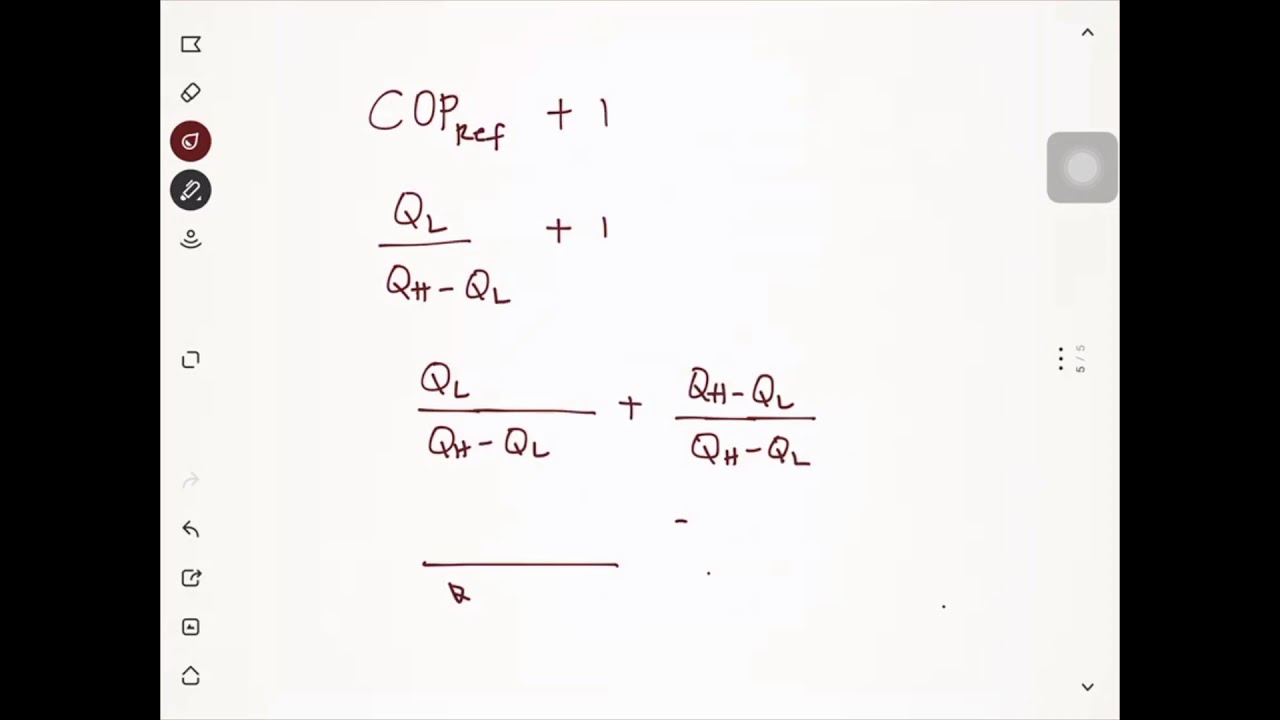 COP_Ref + 1
Q_L / (Q_H - Q_L) + 1
Q_L / (Q_H - Q_L) + (Q_H - Q_L) / (Q_H - Q_L)
-
5 / 5